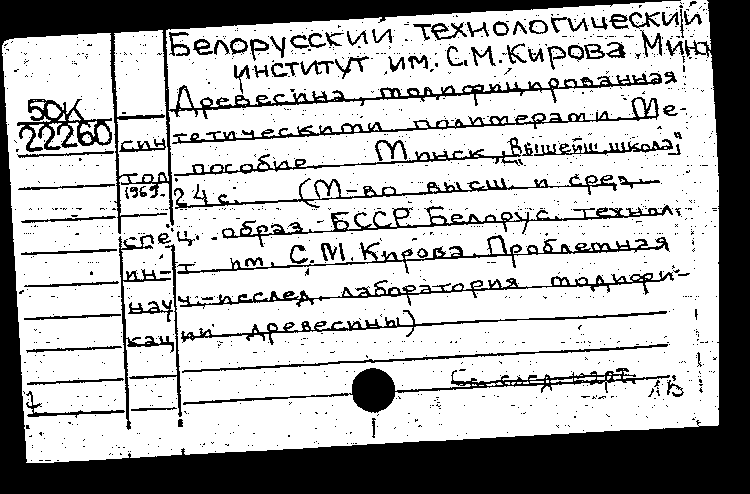 Белорусский технологический
институт им. С.М. Кирова. Минск
50К
Древесина, модифицированная
22260
синтетическими полимерами. Ме-
тод. пособие. Минск, "Вышейш. школа",
1969.
24 с. (М-во высш. и сред.
спец. образ. БССР. Белорус. технол.
ин-т им. С.М. Кирова. Проблемная
науч.-исслед. лаборатория модифи-
кации древесины)
См. след. карт.